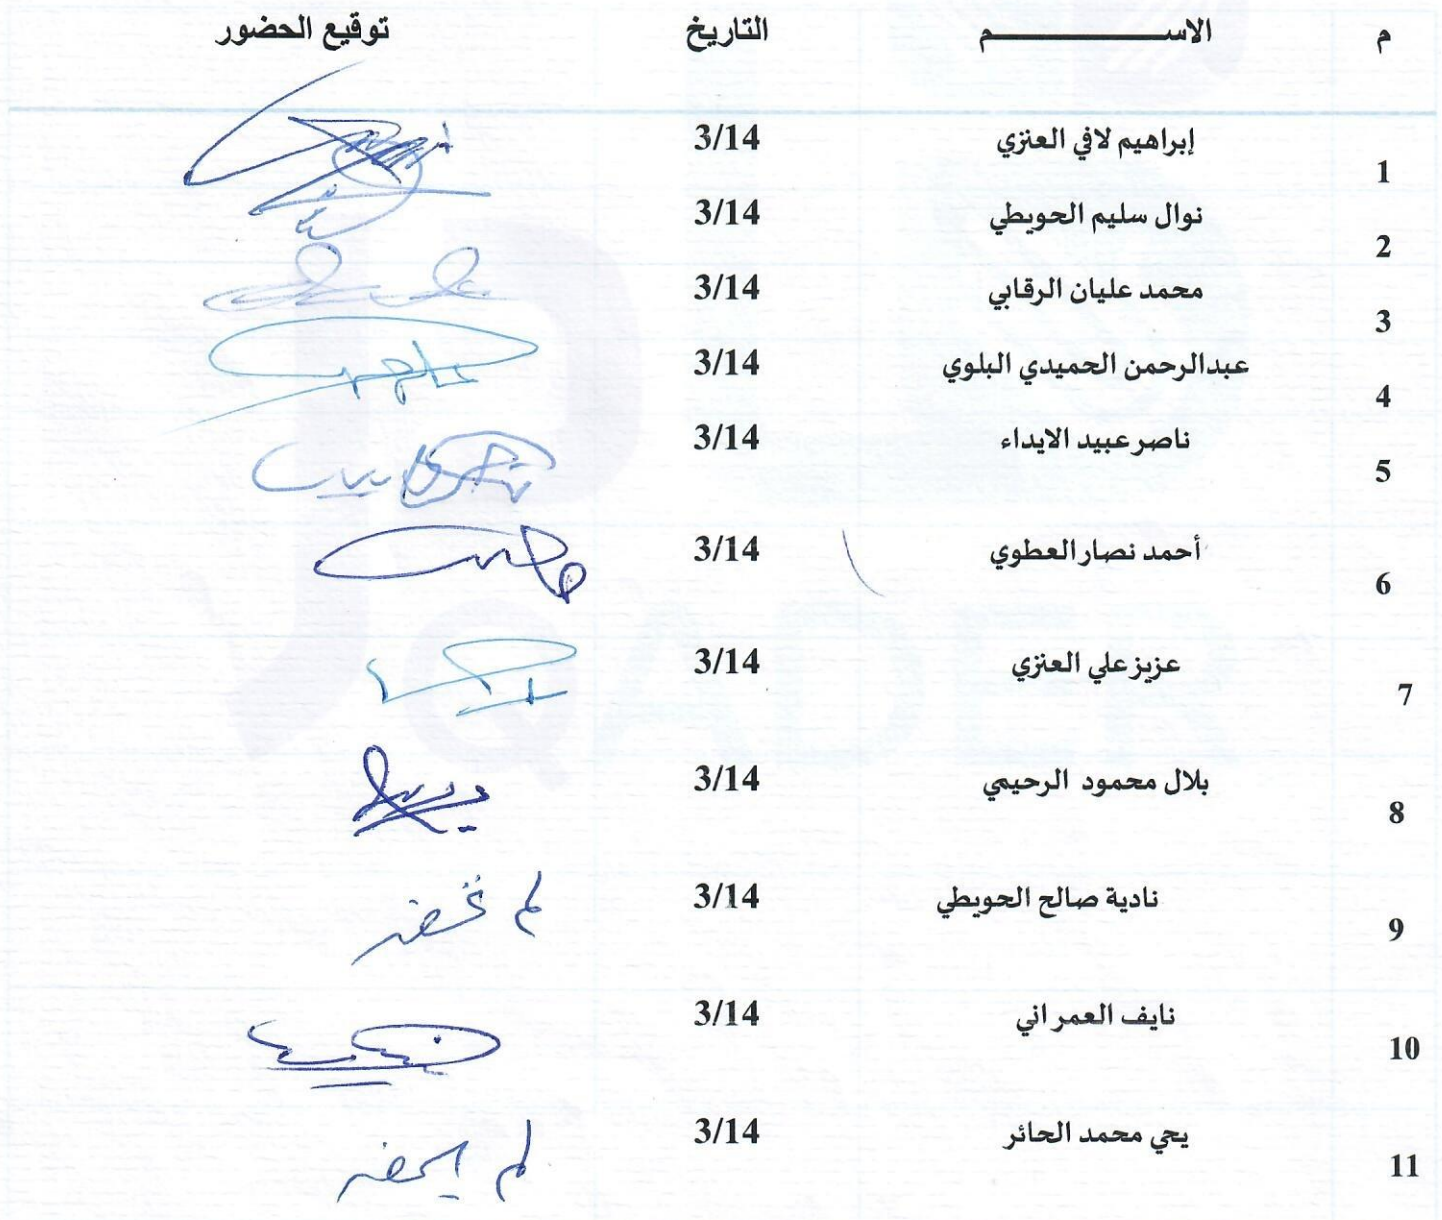 م الاســــــــــــم التاريخ توقيع الحضور
1 إبراهيم لافي العنزي 3/14
2 نوال سليم الحويطي 3/14
3 محمد عليان الرقابي 3/14
4 عبدالرحمن الحميدي البلوي 3/14
5 ناصر عبيد الايداء 3/14
6 أحمد نصار العطوي 3/14
7 عزيز علي العنزي 3/14
8 بلال محمود الرحيمي 3/14
9 نادية صالح الحويطي 3/14 لم تحضر
10 نايف العمراني 3/14
11 يحي محمد الحائر 3/14 لم يحضر
QADER